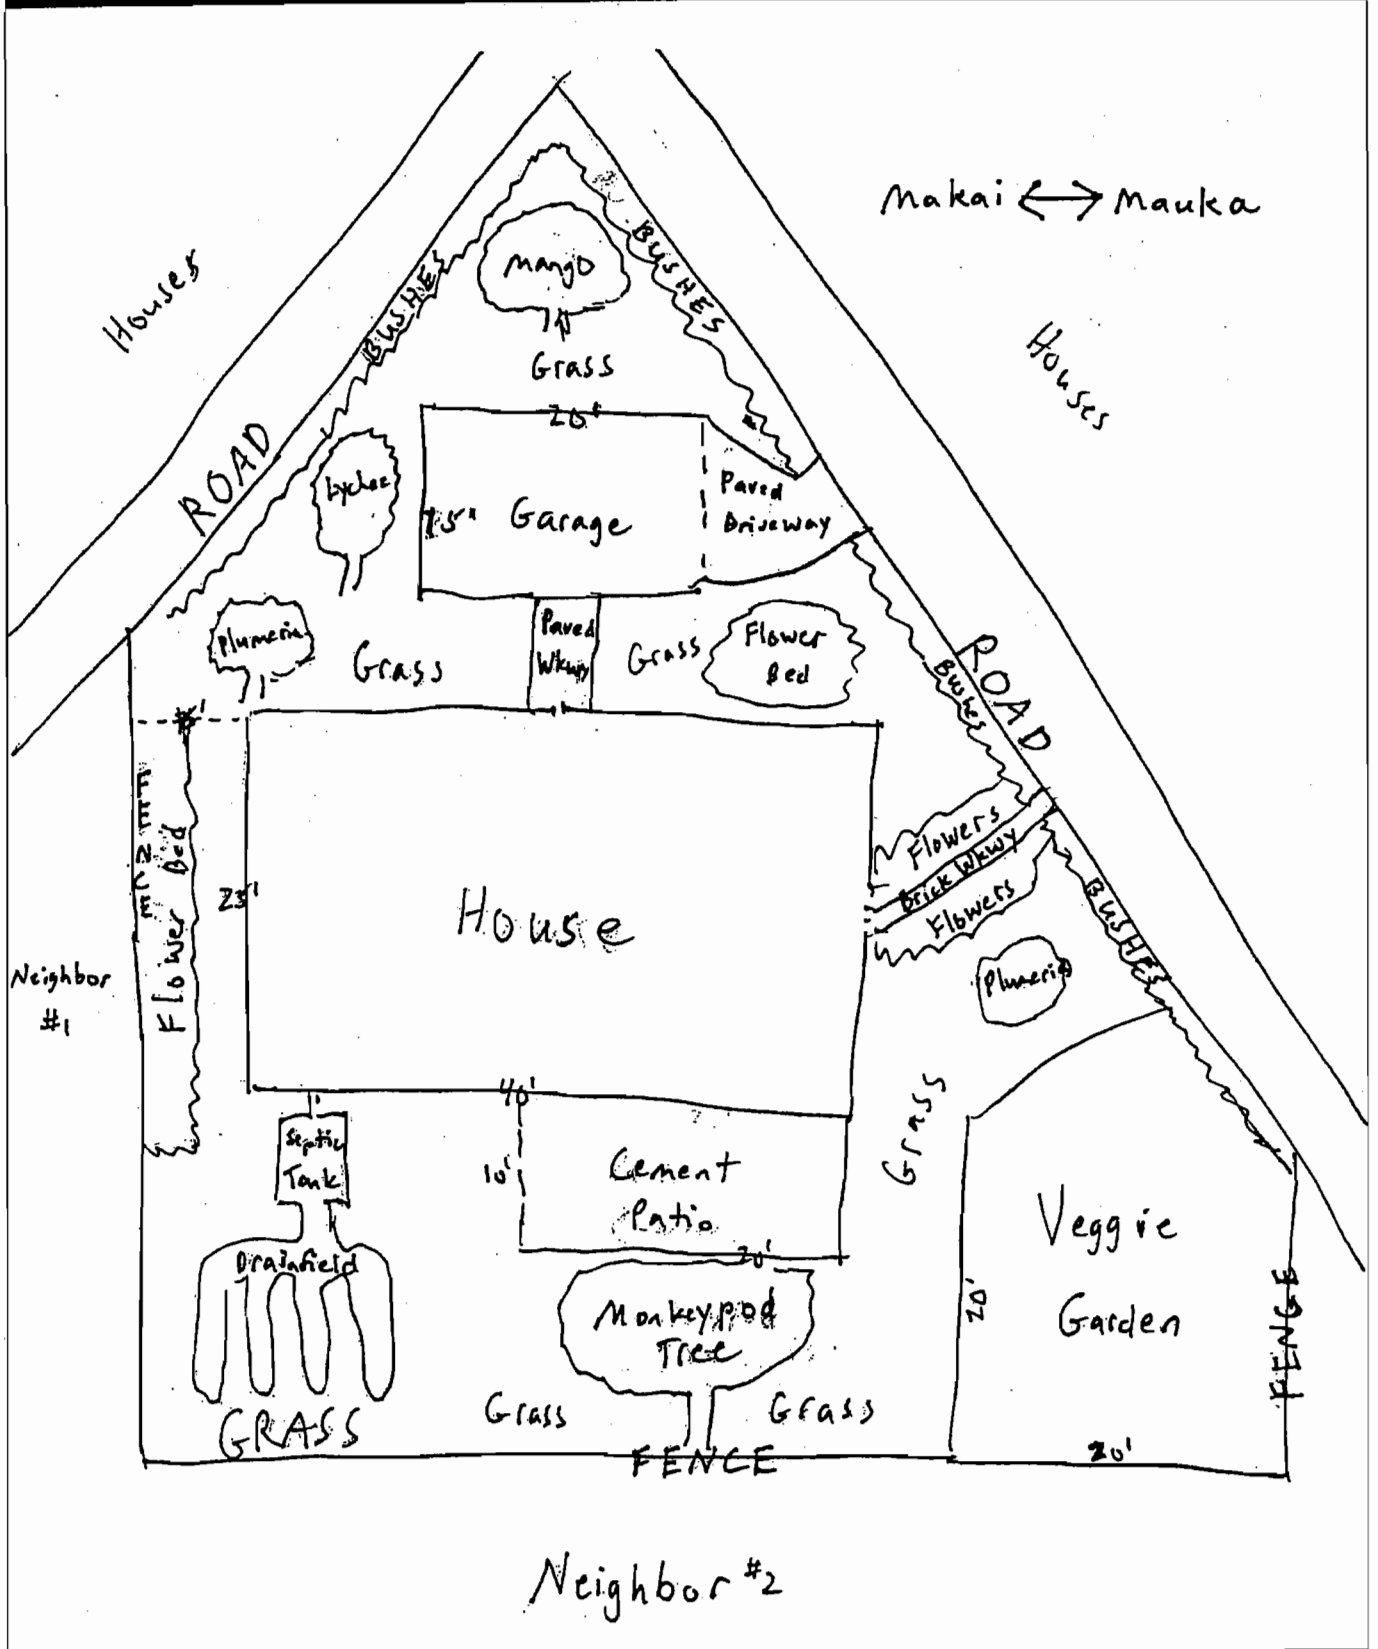 Makai ⟷ Mauka
Houses
BUSHES
BUSHES
Mango
Grass
Houses
ROAD
20'
Lychee
15'
Garage
Paved
Driveway
Plumeria
Grass
Paved
Wkwy
Grass
Flower
Bed
ROAD
Bushes
FENCE
Flower Bed
23'
House
Flowers
Brick Wkwy
Flowers
BUSHES
Neighbor
#1
Plumeria
40'
Septic
Tank
10'
Cement
Patio
20'
Grass
Drainfield
Monkeypod
Tree
Veggie
Garden
20'
FENCE
GRASS
Grass
Grass
FENCE
20'
Neighbor #2